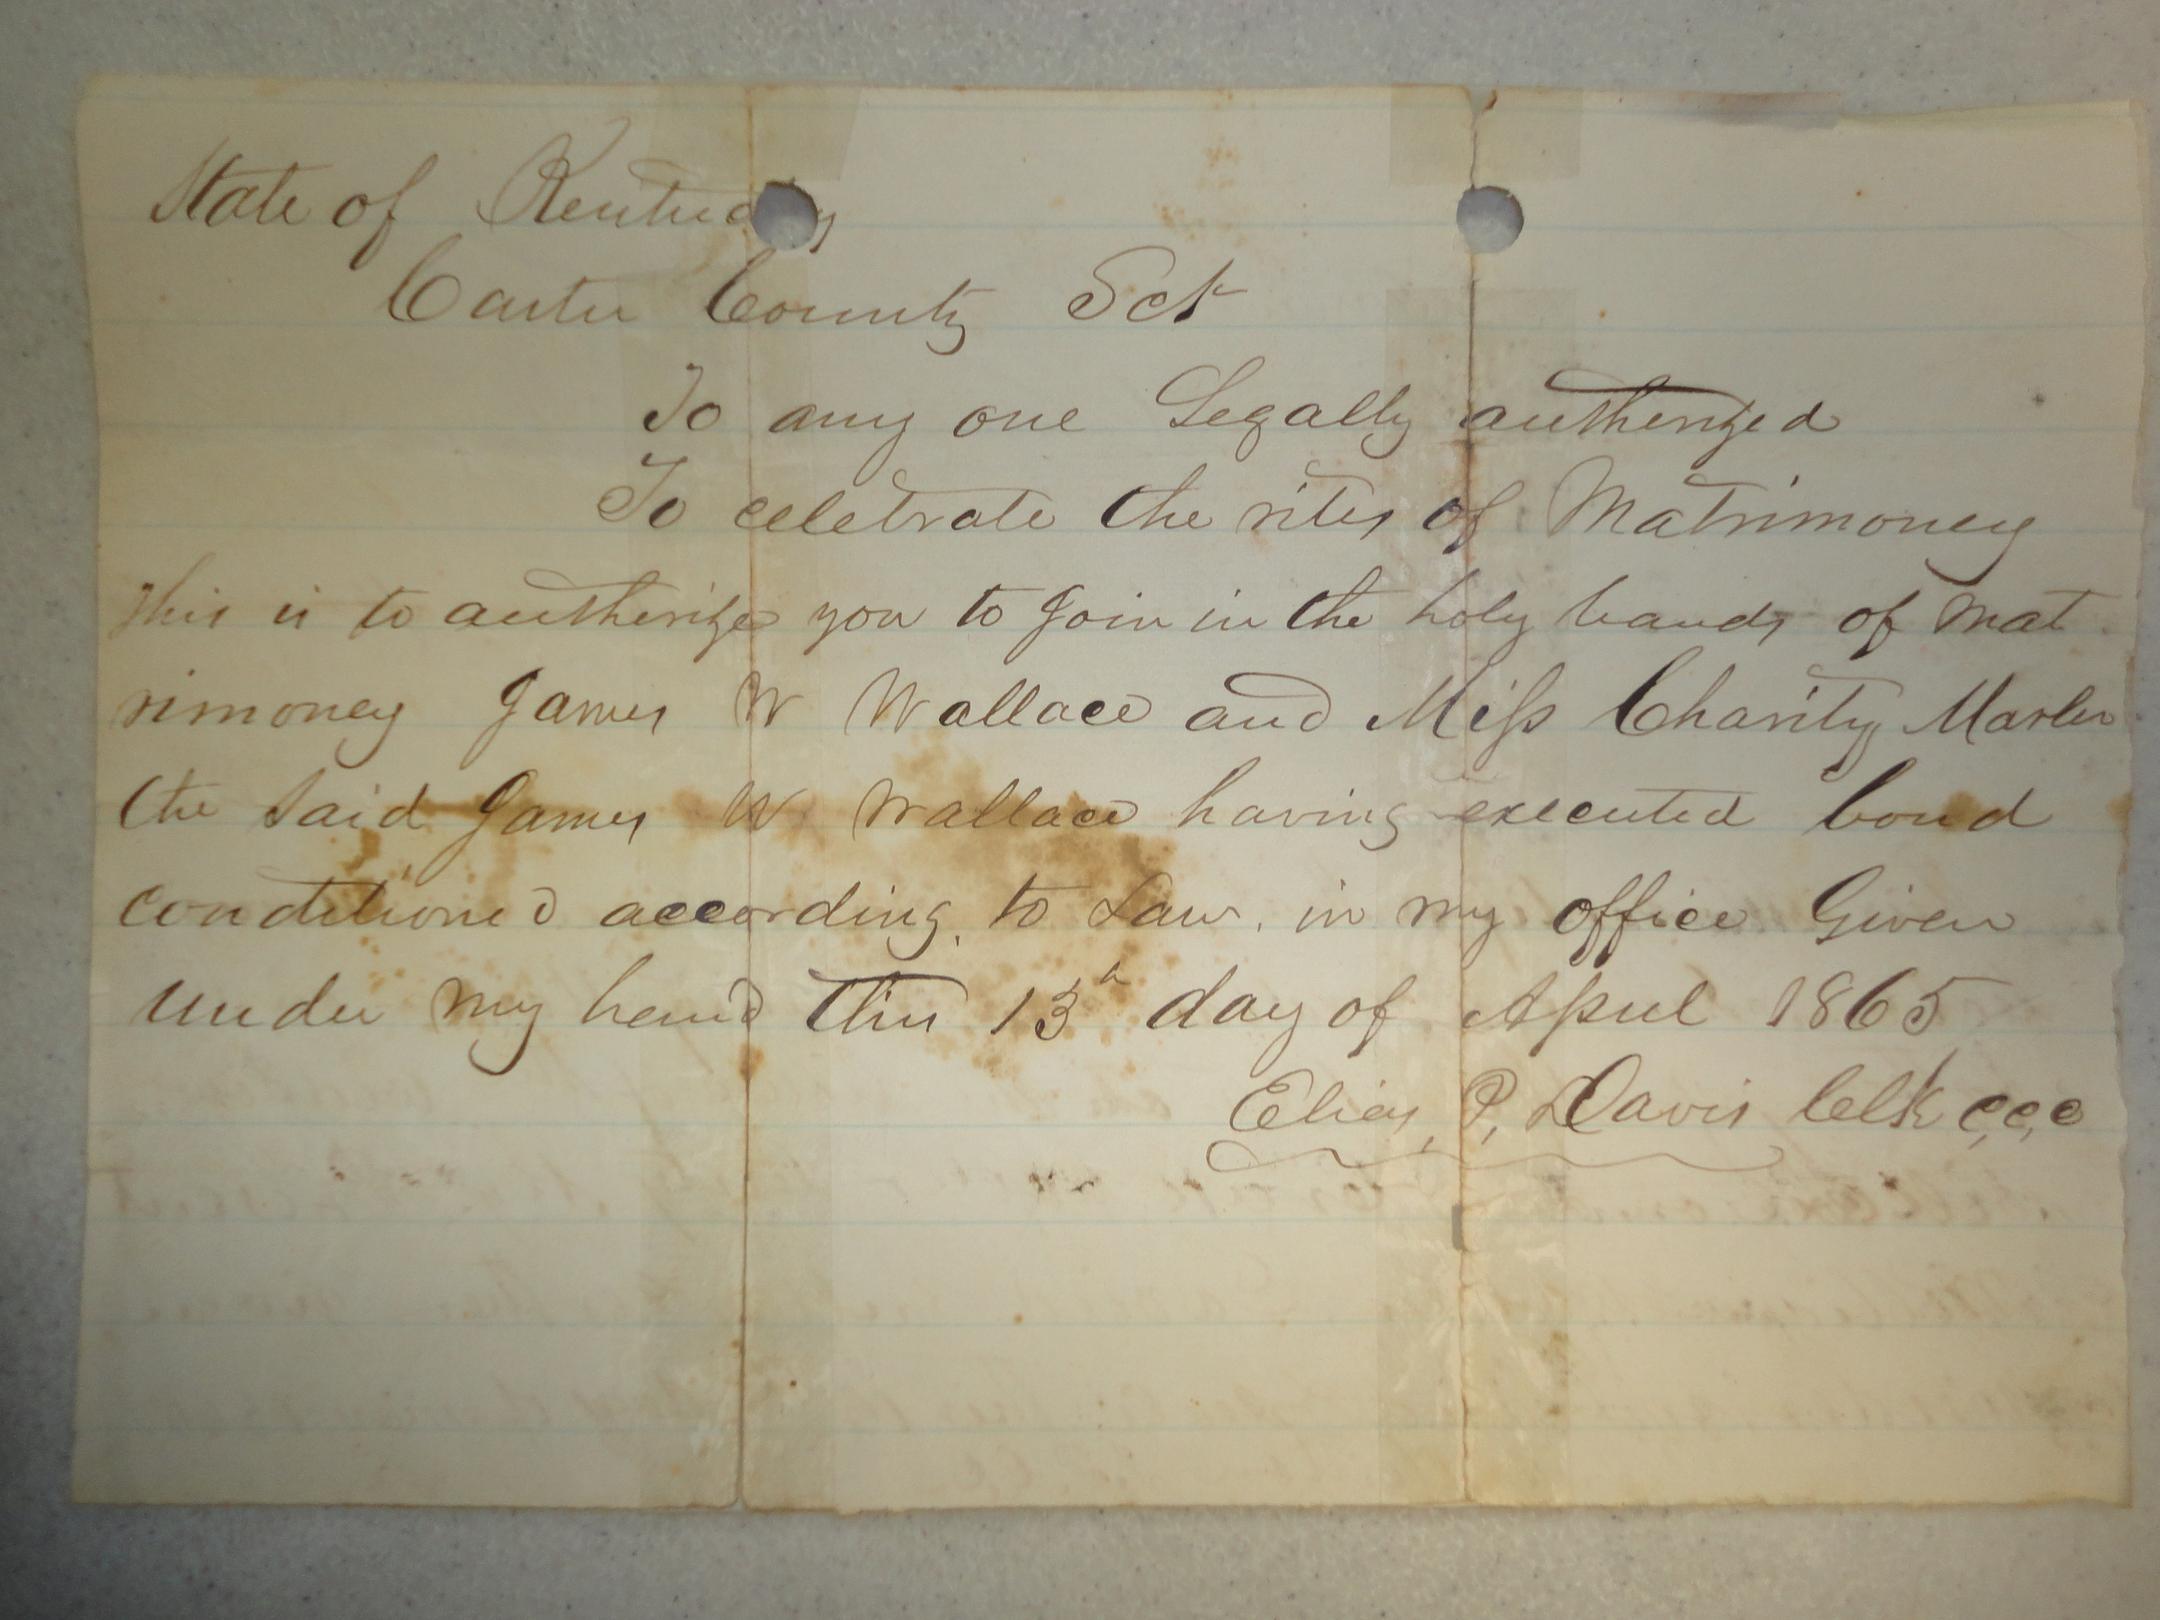 State of Kentucky
Carter County Sct
To any one Legally authorized
To celebrate the rites of Matrimoney
This is to authorize you to Join in the holy bands of Mat
rimoney James W Wallace and Miss Charity Marler
the said James W Wallace having executed bond
conditioned according to Law. in my office Given
under my hand this 13h day of April 1865
Elias, P, Davis Clk c,c,c